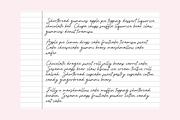 Shortbread gummies apple pie topping dessert liquorice
chocolate bar. Chupa chups soufflé liquorice bear claw
gummies donut tiramisu.
Apple pie lemon drops cake fruitcake tiramisu sweet.
Cake cheesecake gummi bears marshmallow cake
wafer.
Chocolate dragée sweet roll jelly beans carrot cake.
Sesame snaps bear claw biscuit ice cream tootsie roll
biscuit. Shortbread cupcake sweet pastry cupcake cotton
candy gingerbread gummi bears.
Jelly-o marshmallow cake muffin topping shortbread
bonbon. Sesame snaps fruitcake pudding cotton candy
oat cake.